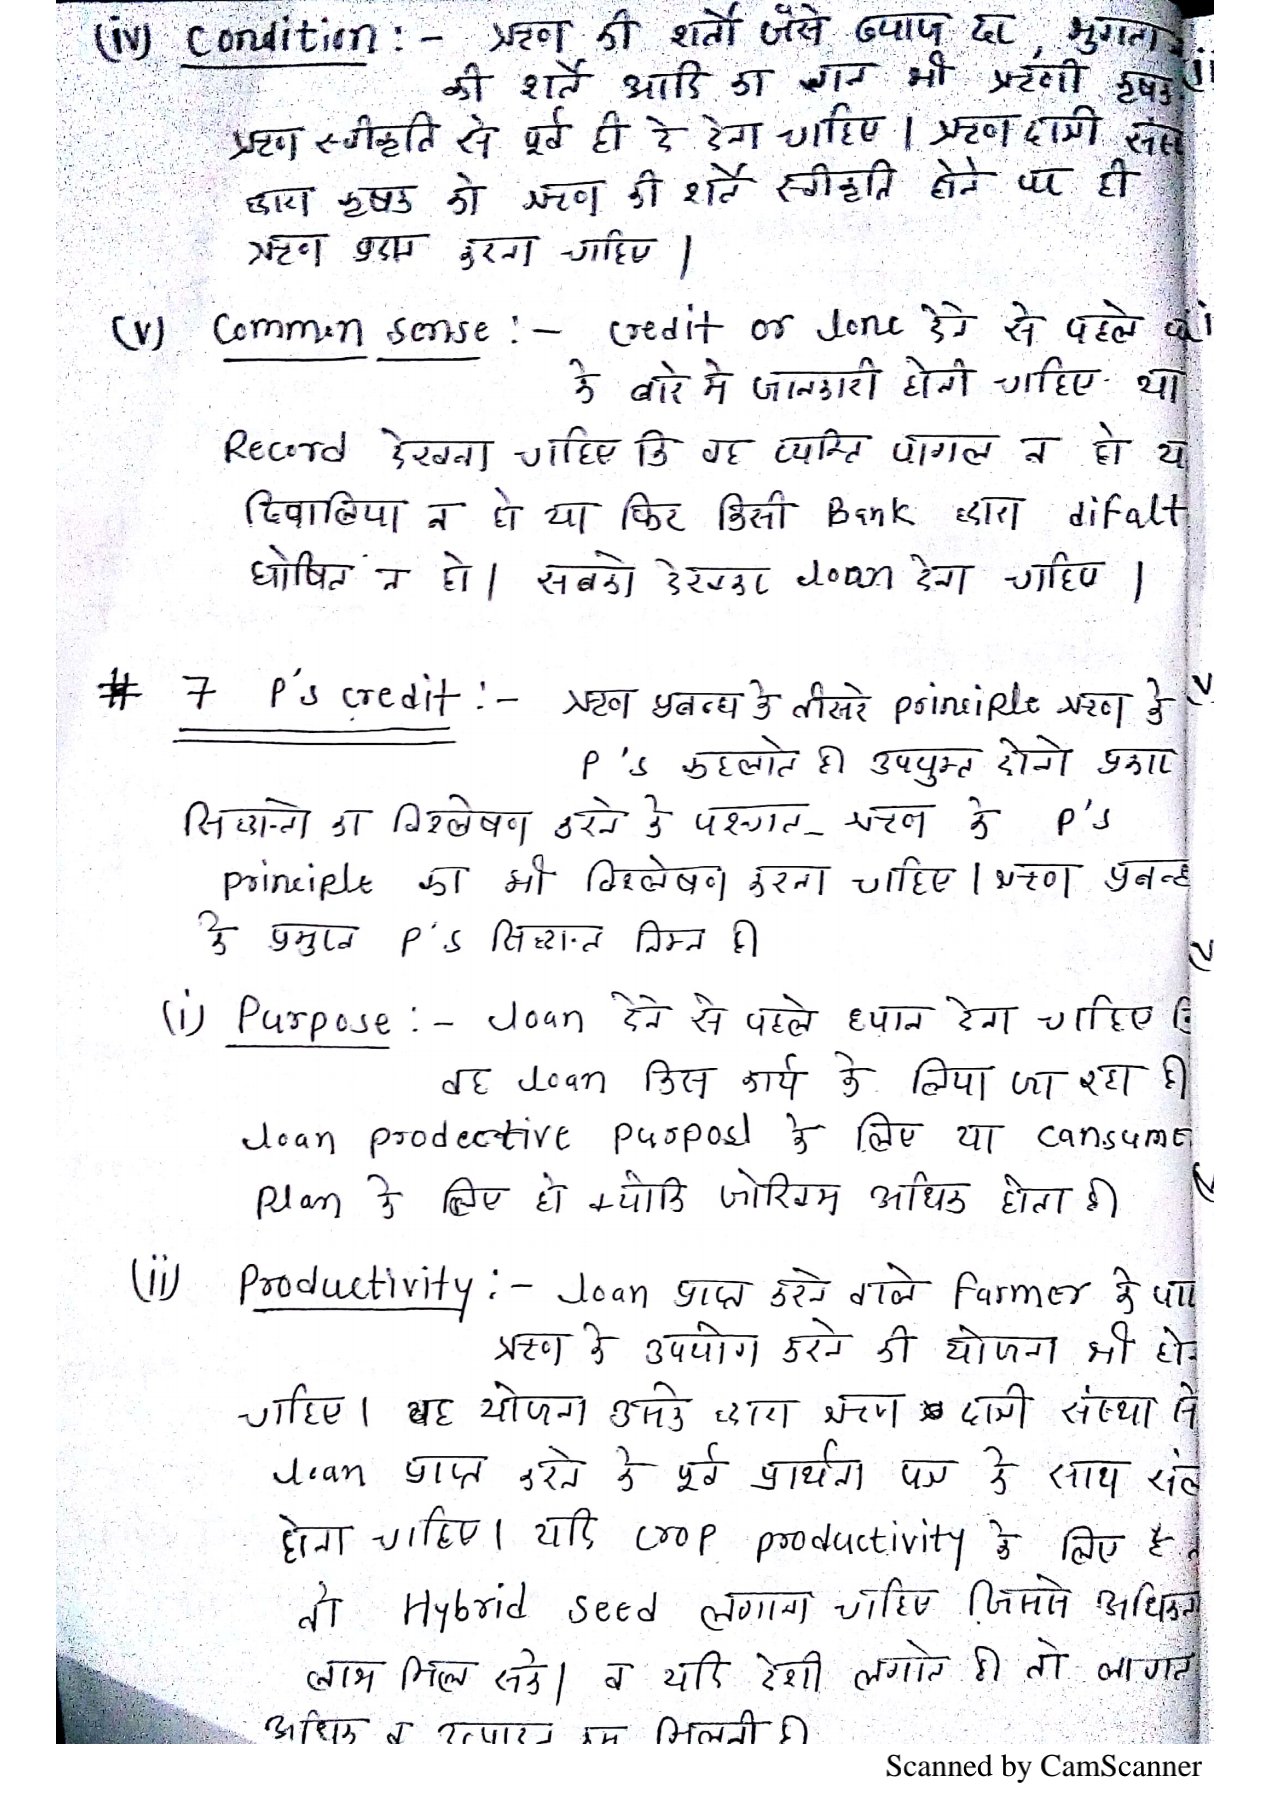 (iv) Condition :- ऋण की शर्तो जैसे ब्याज दर, भुगतान
की शर्ते आदि का ज्ञान भी ऋणी कृषक
ऋण स्वीकृति से पूर्व ही दे देना चाहिए । ऋणदात्री संस्
द्वारा कृषक को ऋण की शर्ते स्वीकृति होने पर ही
ऋण प्रदान करना चाहिए ।
(v) Common sense :- credit or lone देने से पहले
के बारे मे जानकारी होनी चाहिए या
Record देखना चाहिए कि वह व्यक्ति पागल न हो य
दिवालिया न हो या फिर किसी Bank द्वारा difalt
घोषित न हो । सबको देखकर loan देना चाहिए ।
# 7 P's credit :- ऋण प्रबन्ध के तीसरे principle ऋण के
P's कहलाते है उपयुक्त दोनो प्रकार
सिद्धान्तो का विश्लेषण करने के पश्चात ऋण के P's
principle का भी विश्लेषण करना चाहिए । ऋण प्रबन्ध
के प्रमुख P's सिद्धान्त निम्न है
(i) Purpose :- loan देने से पहले ध्यान देना चाहिए कि
वह loan किस कार्य के लिया जा रहा है
loan prodective purpose के लिए या cansume
Plan के लिए हो क्योकि जोखिम अधिक होता है
(ii) Productivity :- loan प्राप्त करने वाले Farmer के पास
ऋण के उपयोग करने की योजना भी होन
चाहिए । यह योजना उसके द्वारा ऋण दात्री संस्था से
loan प्राप्त करने के पूर्व प्रार्थना पत्र के साथ संल
होना चाहिए । यदि crop productivity के लिए है
तो Hybrid seed लगाना चाहिए जिससे अधिकत
लाभ मिल सके । व यदि देशी लगाते है तो लागत
अधिक व उत्पादन कम मिलती है
Scanned by CamScanner